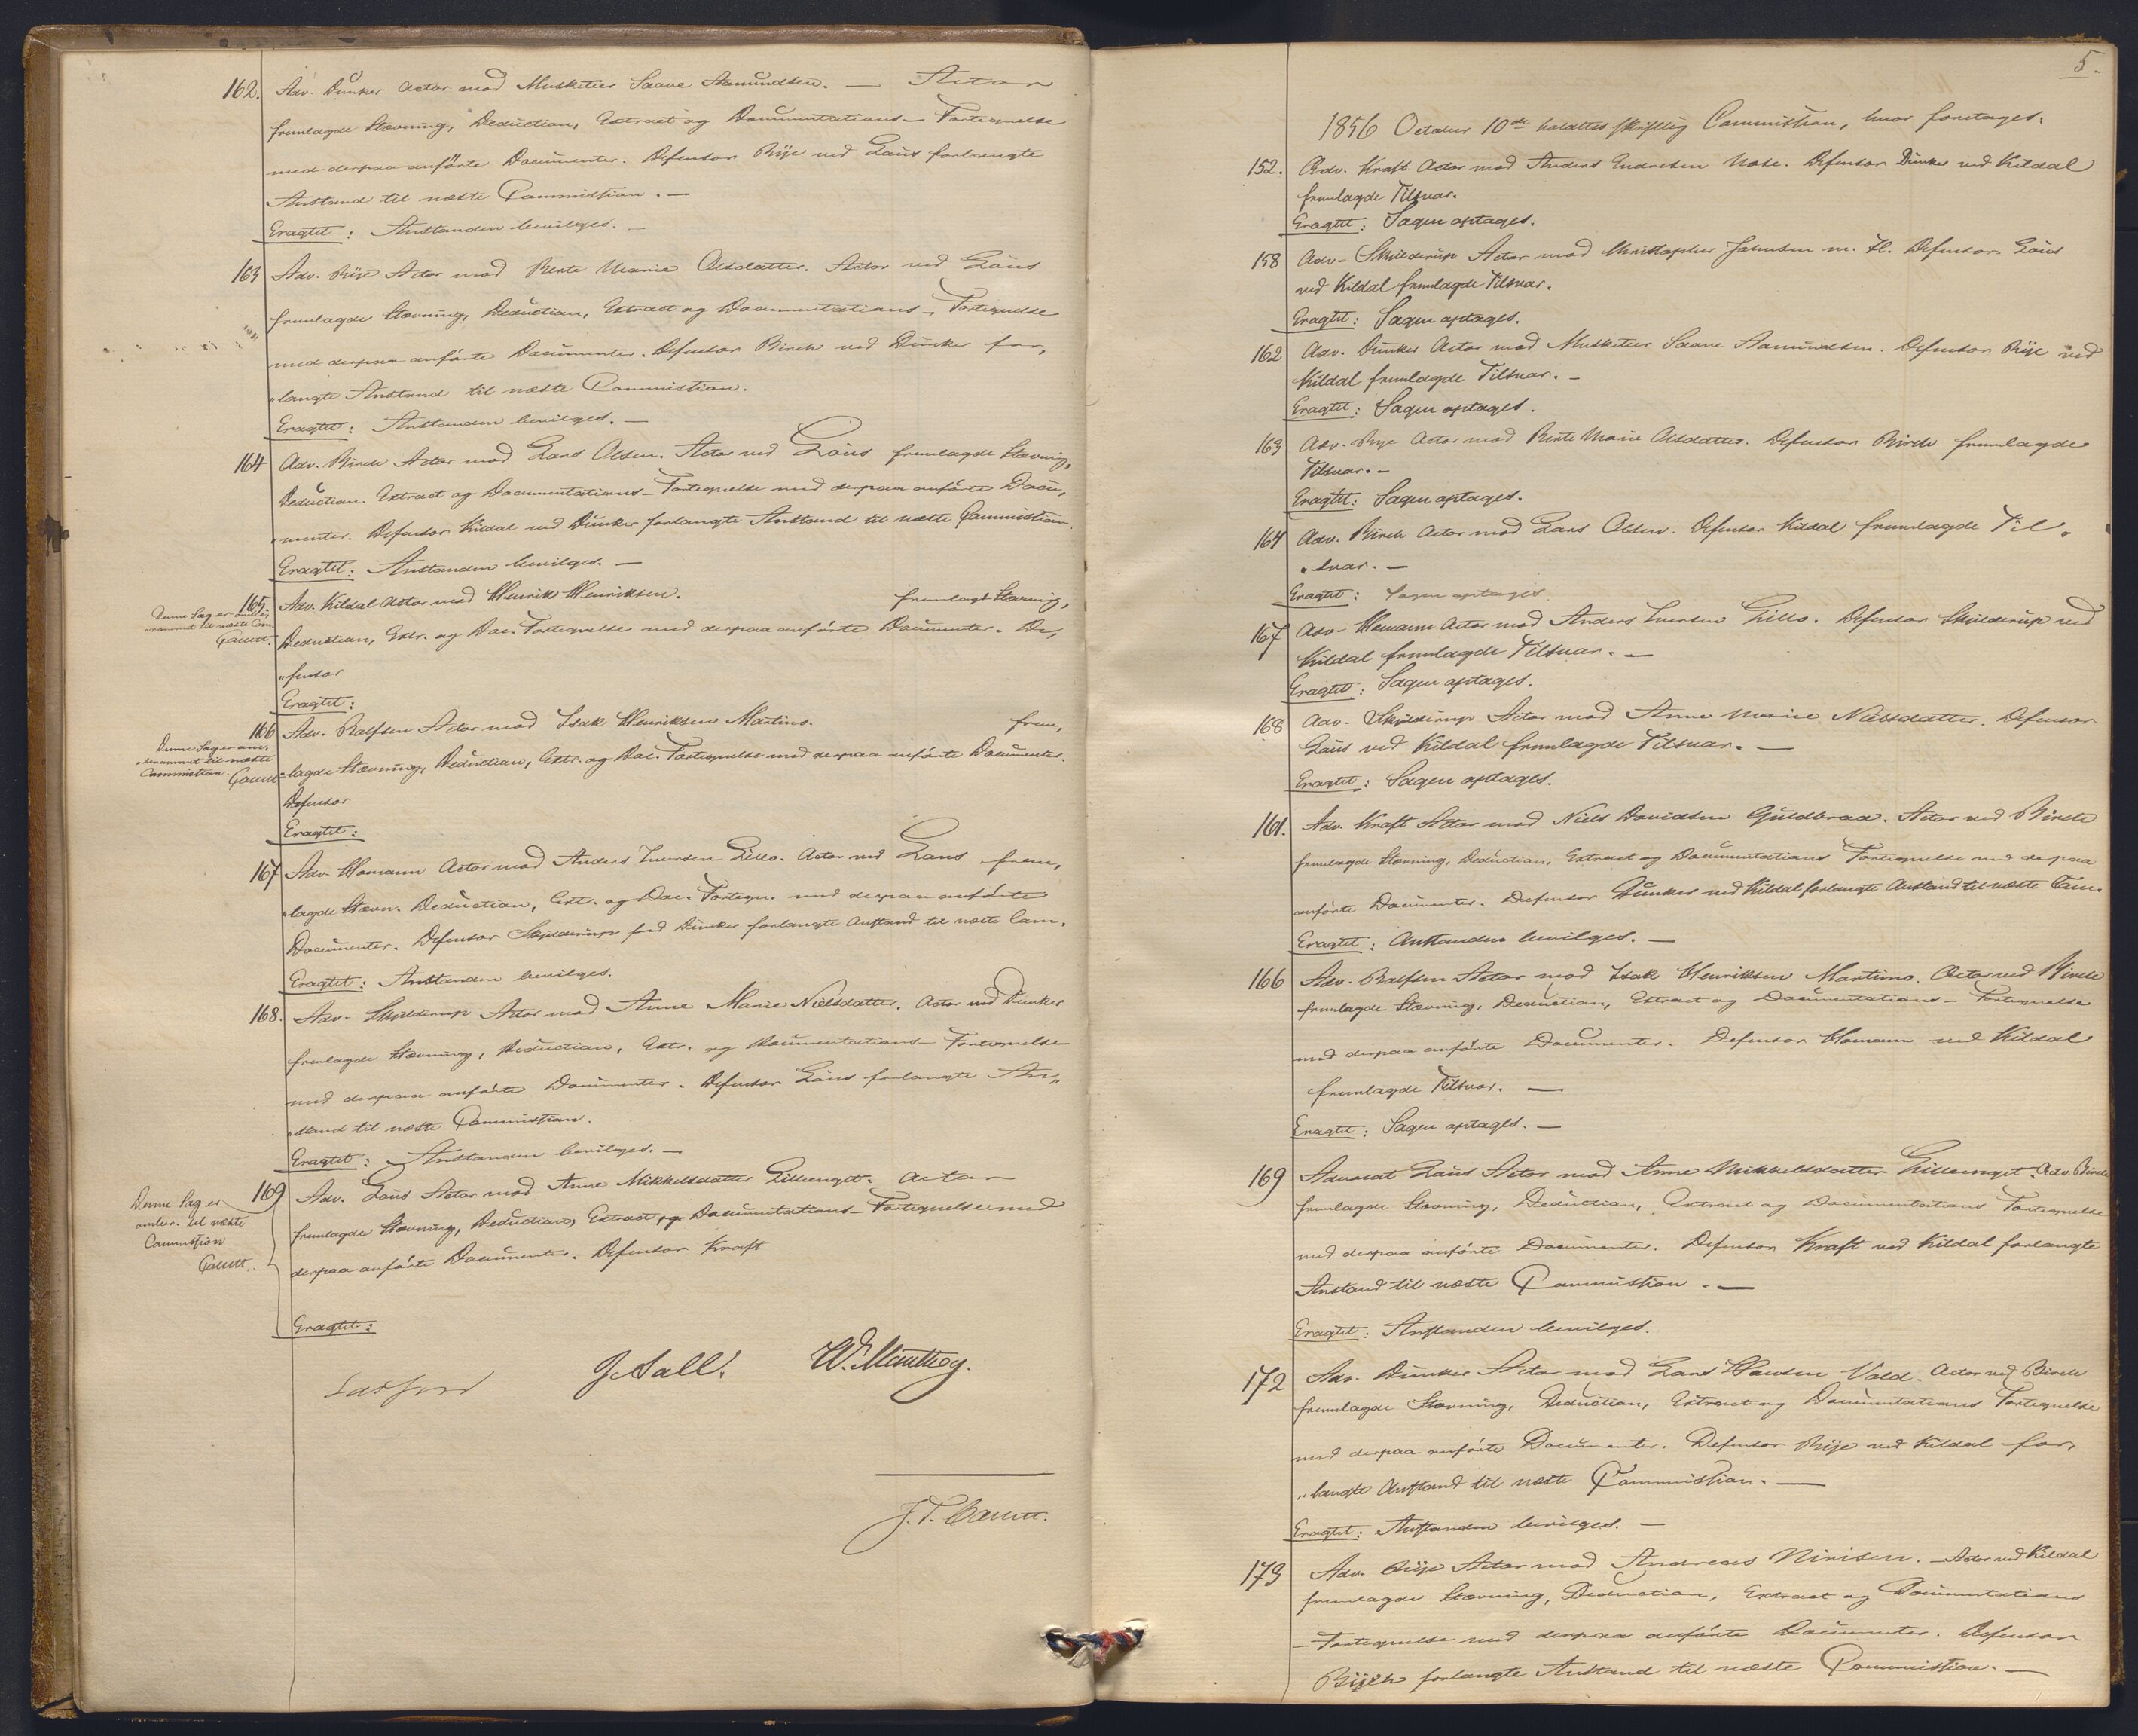 162. Adv. Dunker Actor mod Musketeer Saave Aamundsen. — Actor
fremlagde Stævning, Deduction, Extract og Documentations-Fortegnelse
med derpaa anførte Documenter. Defensor Rije ved Laus forlangte
Anstand til næste Commission. —
Eragtet: Anstanden bevilges. —
163 Adv. Rije Actor mod Berte Marie Olsdatter. Actor ved Laus
fremlagde Stævning, Deduction, Extract og Documentations-Fortegnelse
med derpaa anførte Documenter. Defensor Birch ved Dunker for,
"langte Anstand til næste Commission.
Eragtet: Anstanden bevilges. —
164 Adv. Birch Actor mod Lars Olsen. Actor ved Laus fremlagde Stævning,
Deduction. Extract og Documentations-Fortegnelse med derpaa anførte Docu,
"menter. Defensor Kildal ved Dunker forlangte Anstand til næste Commission.
Eragtet: Anstanden bevilges. —
165. Adv. Kildal Actor mod Henrik Henriksen. fremlagd Stævning,
Denne Sag er
til næste Com.
Deduction, Extr. og Doc. Fortegnelse med derpaa anførte Documenter. De,
"fensor
Eragtet:
166 Adv. Ralfsen Actor mod Isak Henriksen Martino. frem,
Denne Sag er om,
"berammet til næste
Commission.
"lagde Stævning, Deduction, Extr. og Doc. Fortegnelse med derpaa anførte Documenter.
Defensor
Eragtet:
167 Adv. Homann Actor mod Anders Iversen Lillo. Actor ved Laus frem,
"lagde Stævn. Deduction, Extr. og Doc. Fortegn. med derpaa anførte
Documenter. Defensor Skjilderup ved Dunker forlangte Anstand til næste Com.
Eragtet: Anstanden bevilges.
168. Adv. Skjilderup Actor mod Anne Marie Nielsdatter. Actor ved Dunker
fremlagde Stævning, Deduction, Extr. og Documentations-Fortegnelse
med derpaa anførte Documenter. Defensor Laus forlangte An,,
"stand til næste Commission.
Eragtet: Anstanden bevilges. —
169 Adv. Laus Actor mod Anne Mikkelsdatter Lilleenget. Actor
Denne Sag er
omber. til næste
Commission
fremlagde Stævning, Deduction, Extract og Documentations-Fortegnelse med
derpaa anførte Documenter. Defensor Kraft
Eragtet:
J. Sall. W. Manthey.
5.
1856 October 10de holdtes skriftlig Commission, hvor foretages.
152. Adv. Kraft Actor mod Anders Endresen Næse. Defensor Dunker ved Kildal
fremlagde Tilsvar.
Eragtet: Sagen optages.
158 Adv. Skjilderup Actor mod Christopher Johnsen m. Fl. Defensor Laus
ved Kildal fremlagde Tilsvar.
Eragtet: Sagen optages.
162 Adv. Dunker Actor mod Musketeer Saave Aamundsen. Defensor Rije ved
Kildal fremlagde Tilsvar. —
Eragtet: Sagen optages.
163 Adv. Rije Actor mod Berte Marie Olsdatter. Defensor Birch fremlagde
Tilsvar. —
Eragtet: Sagen optages.
164 Adv. Birch Actor mod Lars Olsen. Defensor Kildal fremlagde Til,
"svar. —
Eragtet: Sagen optages.
167 Adv. Homann Actor mod Anders Iversen Lillo. Defensor Skjilderup ved
Kildal fremlagde Tilsvar. —
Eragtet: Sagen optages.
168 Adv. Skjilderup Actor mod Anne Marie Nielsdatter. Defensor
Laus ved Kildal fremlagde Tilsvar. —
Eragtet: Sagen optages.
161. Adv. Kraft Actor mod Niels Davidsen Guldbraa. Actor ved Birch
fremlagde Stævning, Deduction, Extract og Documentations Fortegnelse med derpaa
anførte Documenter. Defensor Dunker ved Kildal forlangte Anstand til næste Com.
Eragtet: Anstanden bevilges. —
166 Adv. Ralfsen Actor mod Isak Henriksen Martino. Actor ved Birch
fremlagde Stævning, Deduction, Extract og Documentations-Fortegnelse
med derpaa anførte Documenter. Defensor Homann ved Kildal
fremlagde Tilsvar. —
Eragtet: Sagen optages. —
169 Advocat Laus Actor mod Anne Mikkelsdatter Lilleenget. Adv. Birch
fremlagde Stævning, Deduction, Extract og Documentations Fortegnelse
med derpaa anførte Documenter. Defensor Kraft ved Kildal forlangte
Anstand til næste Commission. —
Eragtet: Anstanden bevilges.
172 Adv. Dunker Actor mod Lars Hansen Vold. Actor ved Birch
fremlagde Stævning, Deduction, Extract og Documentations Fortegnelse
med derpaa anførte Documenter. Defensor Rije ved Kildal for,
"langte Anstand til næste Commission. —
Eragtet: Anstanden bevilges. —
173 Adv. Rije Actor mod Andreas Nirisen. — Actor ved Kildal
fremlagde Stævning, Deduction, Extract og Documentations
-Fortegnelse med derpaa anførte Documenter. Defensor
Birch forlangte Anstand til næste Commission. —